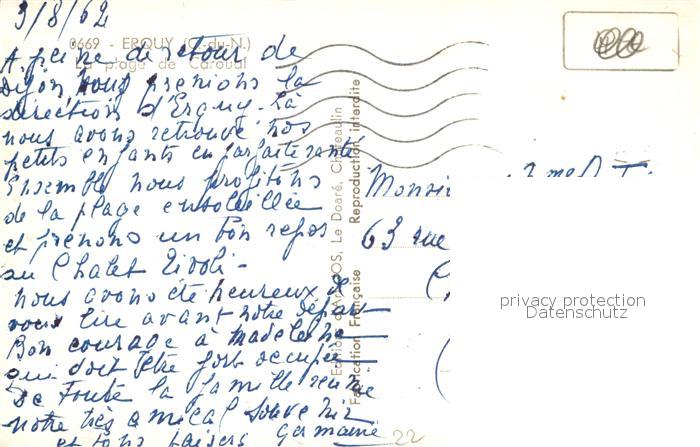 9/8/62
0669 - ERQUY (C.-du-N.)
La plage de Caroual
A peine de retour de
Dijon nous prenions la
direction d'Erquy. Là
nous avons retrouvé nos
petits enfants en parfaite santé
Ensemble nous profitons
de la plage ensoleillée
et prenons un bon repos
au Chalet Tivoli -
nous avons été heureux de
vous lire avant notre départ
Bon courage à Madeleine
qui doit être fort occupée
De toute la famille réunie
notre très amical souvenir
et bons baisers Germaine
22
LE DOARÉ, Châteaulin
Reproduction interdite
Fabrication Française
63 rue
privacy protection
Datenschutz